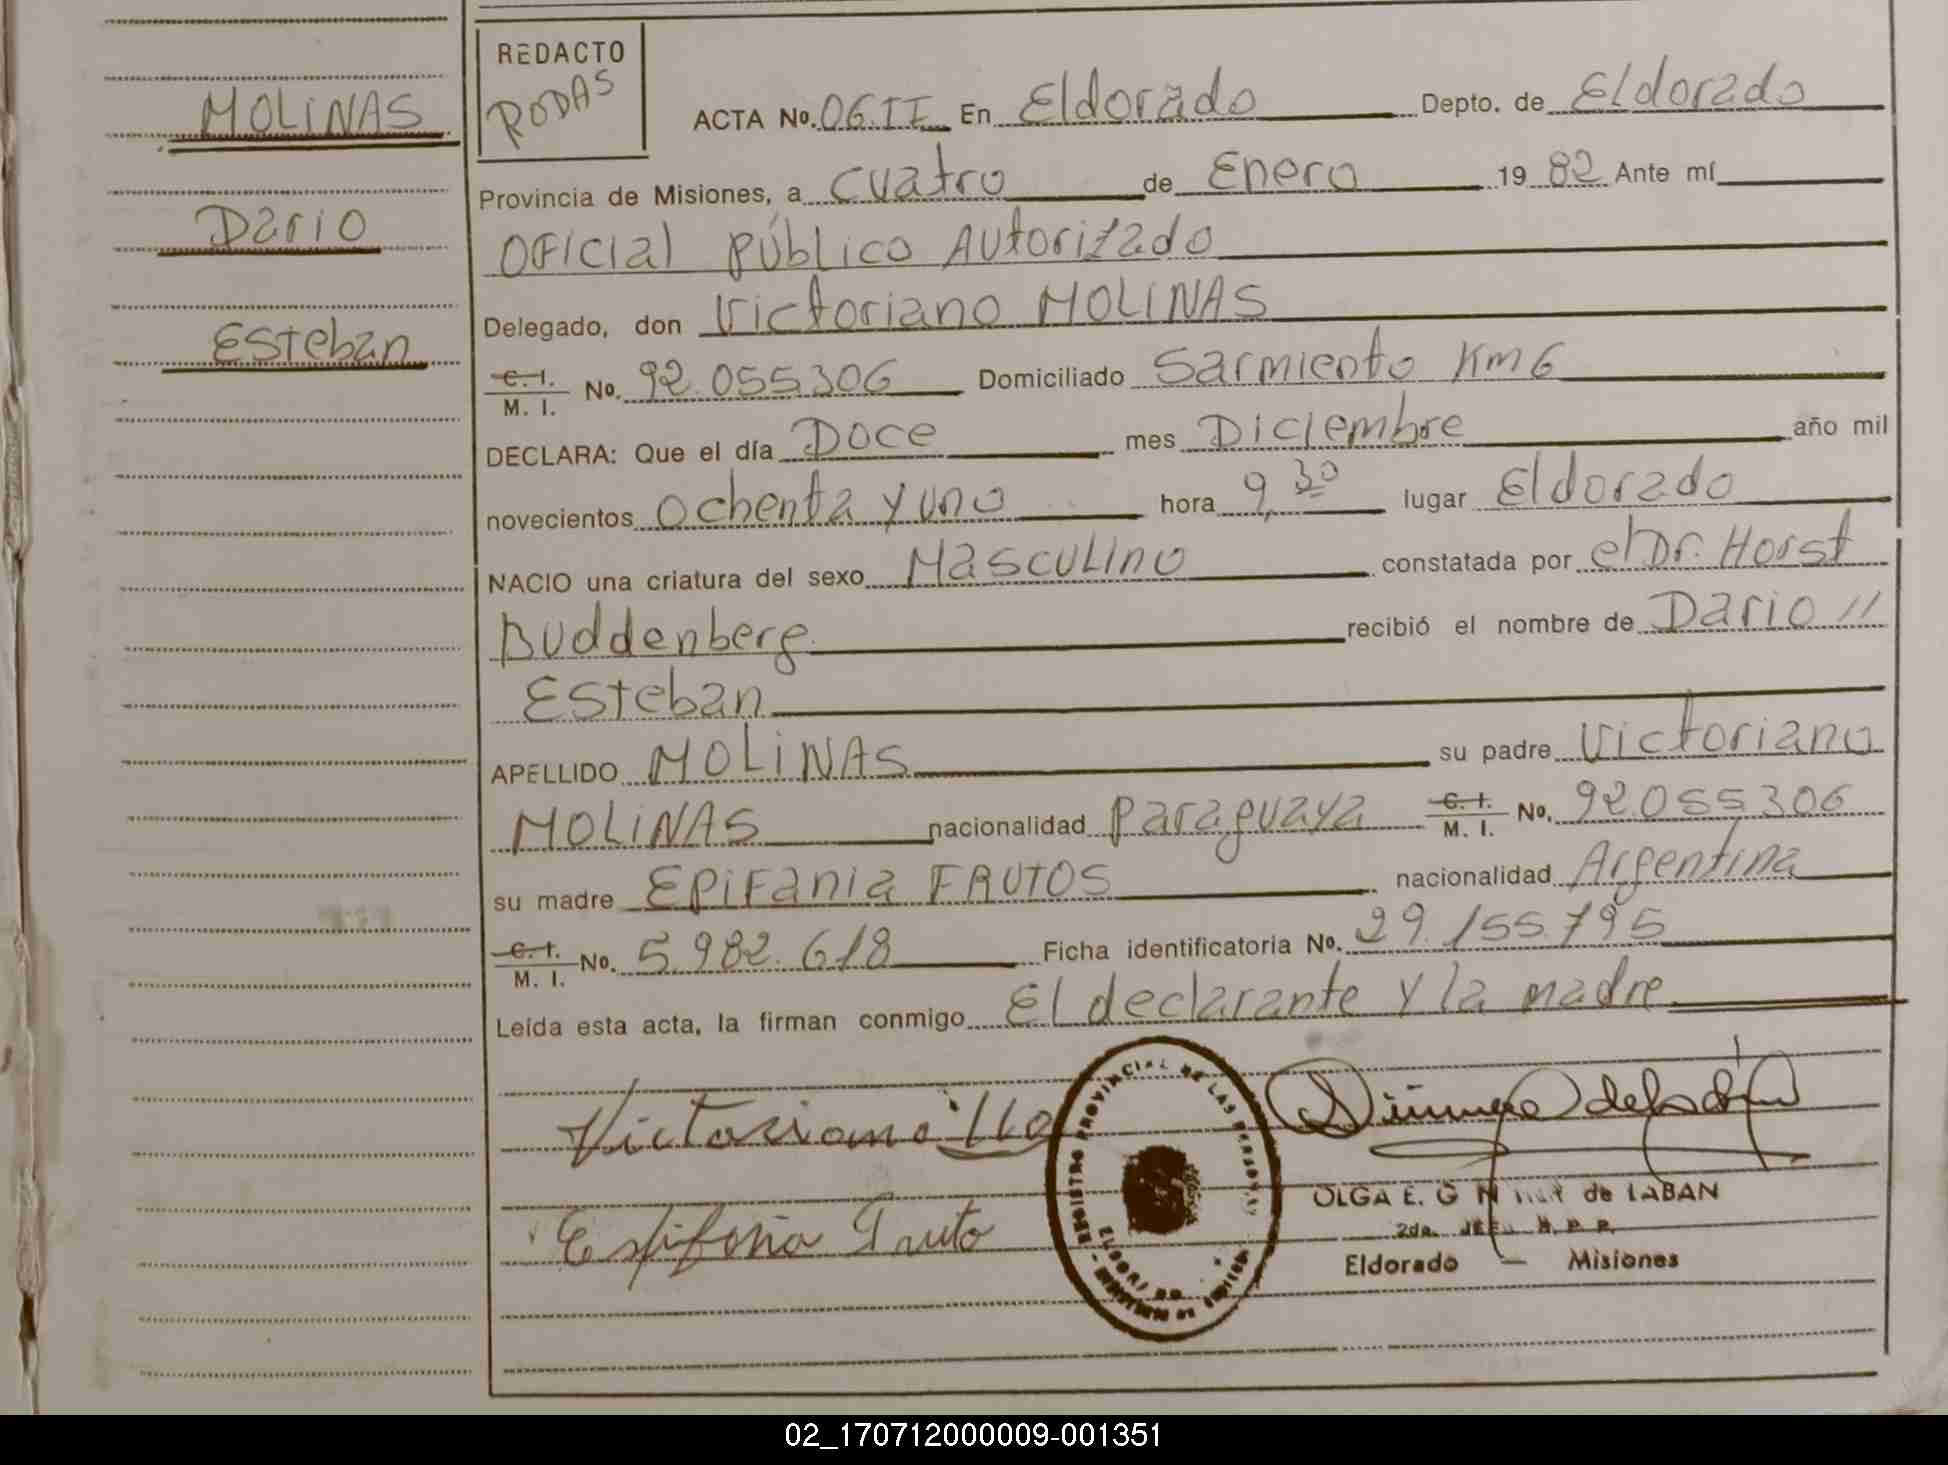 MOLINAS
Dario
Esteban
REDACTO
RODAS
ACTA No. 06.II En Eldorado Depto. de Eldorado
Provincia de Misiones, a Cuatro de Enero 19 82 Ante mí
Oficial Público Autorizado
Delegado, don Victoriano MOLINAS
C. I. M. I. No. 92.055306 Domiciliado Sarmiento Km 6
DECLARA: Que el día Doce mes Diciembre año mil
novecientos ochenta y uno hora 9,30 lugar Eldorado
NACIO una criatura del sexo Masculino constatada por el Dr. Horst
Buddenberg recibió el nombre de Dario //
Esteban
APELLIDO MOLINAS su padre Victoriano
MOLINAS nacionalidad paraguaya C. I. M. I. No. 92.055.306
su madre Epifania FRUTOS nacionalidad Argentina
C. I. M. I. No. 5.982.618 Ficha identificatoria No. 29.155.795
Leída esta acta, la firman conmigo El declarante y la madre
Victoriano Mo
REGISTRO PROVINCIAL DE LAS PERSONAS
Epifania Fruto
OLGA E. de LABAN
2da. JEFE R. P. P.
Eldorado — Misiones
02_170712000009-001351